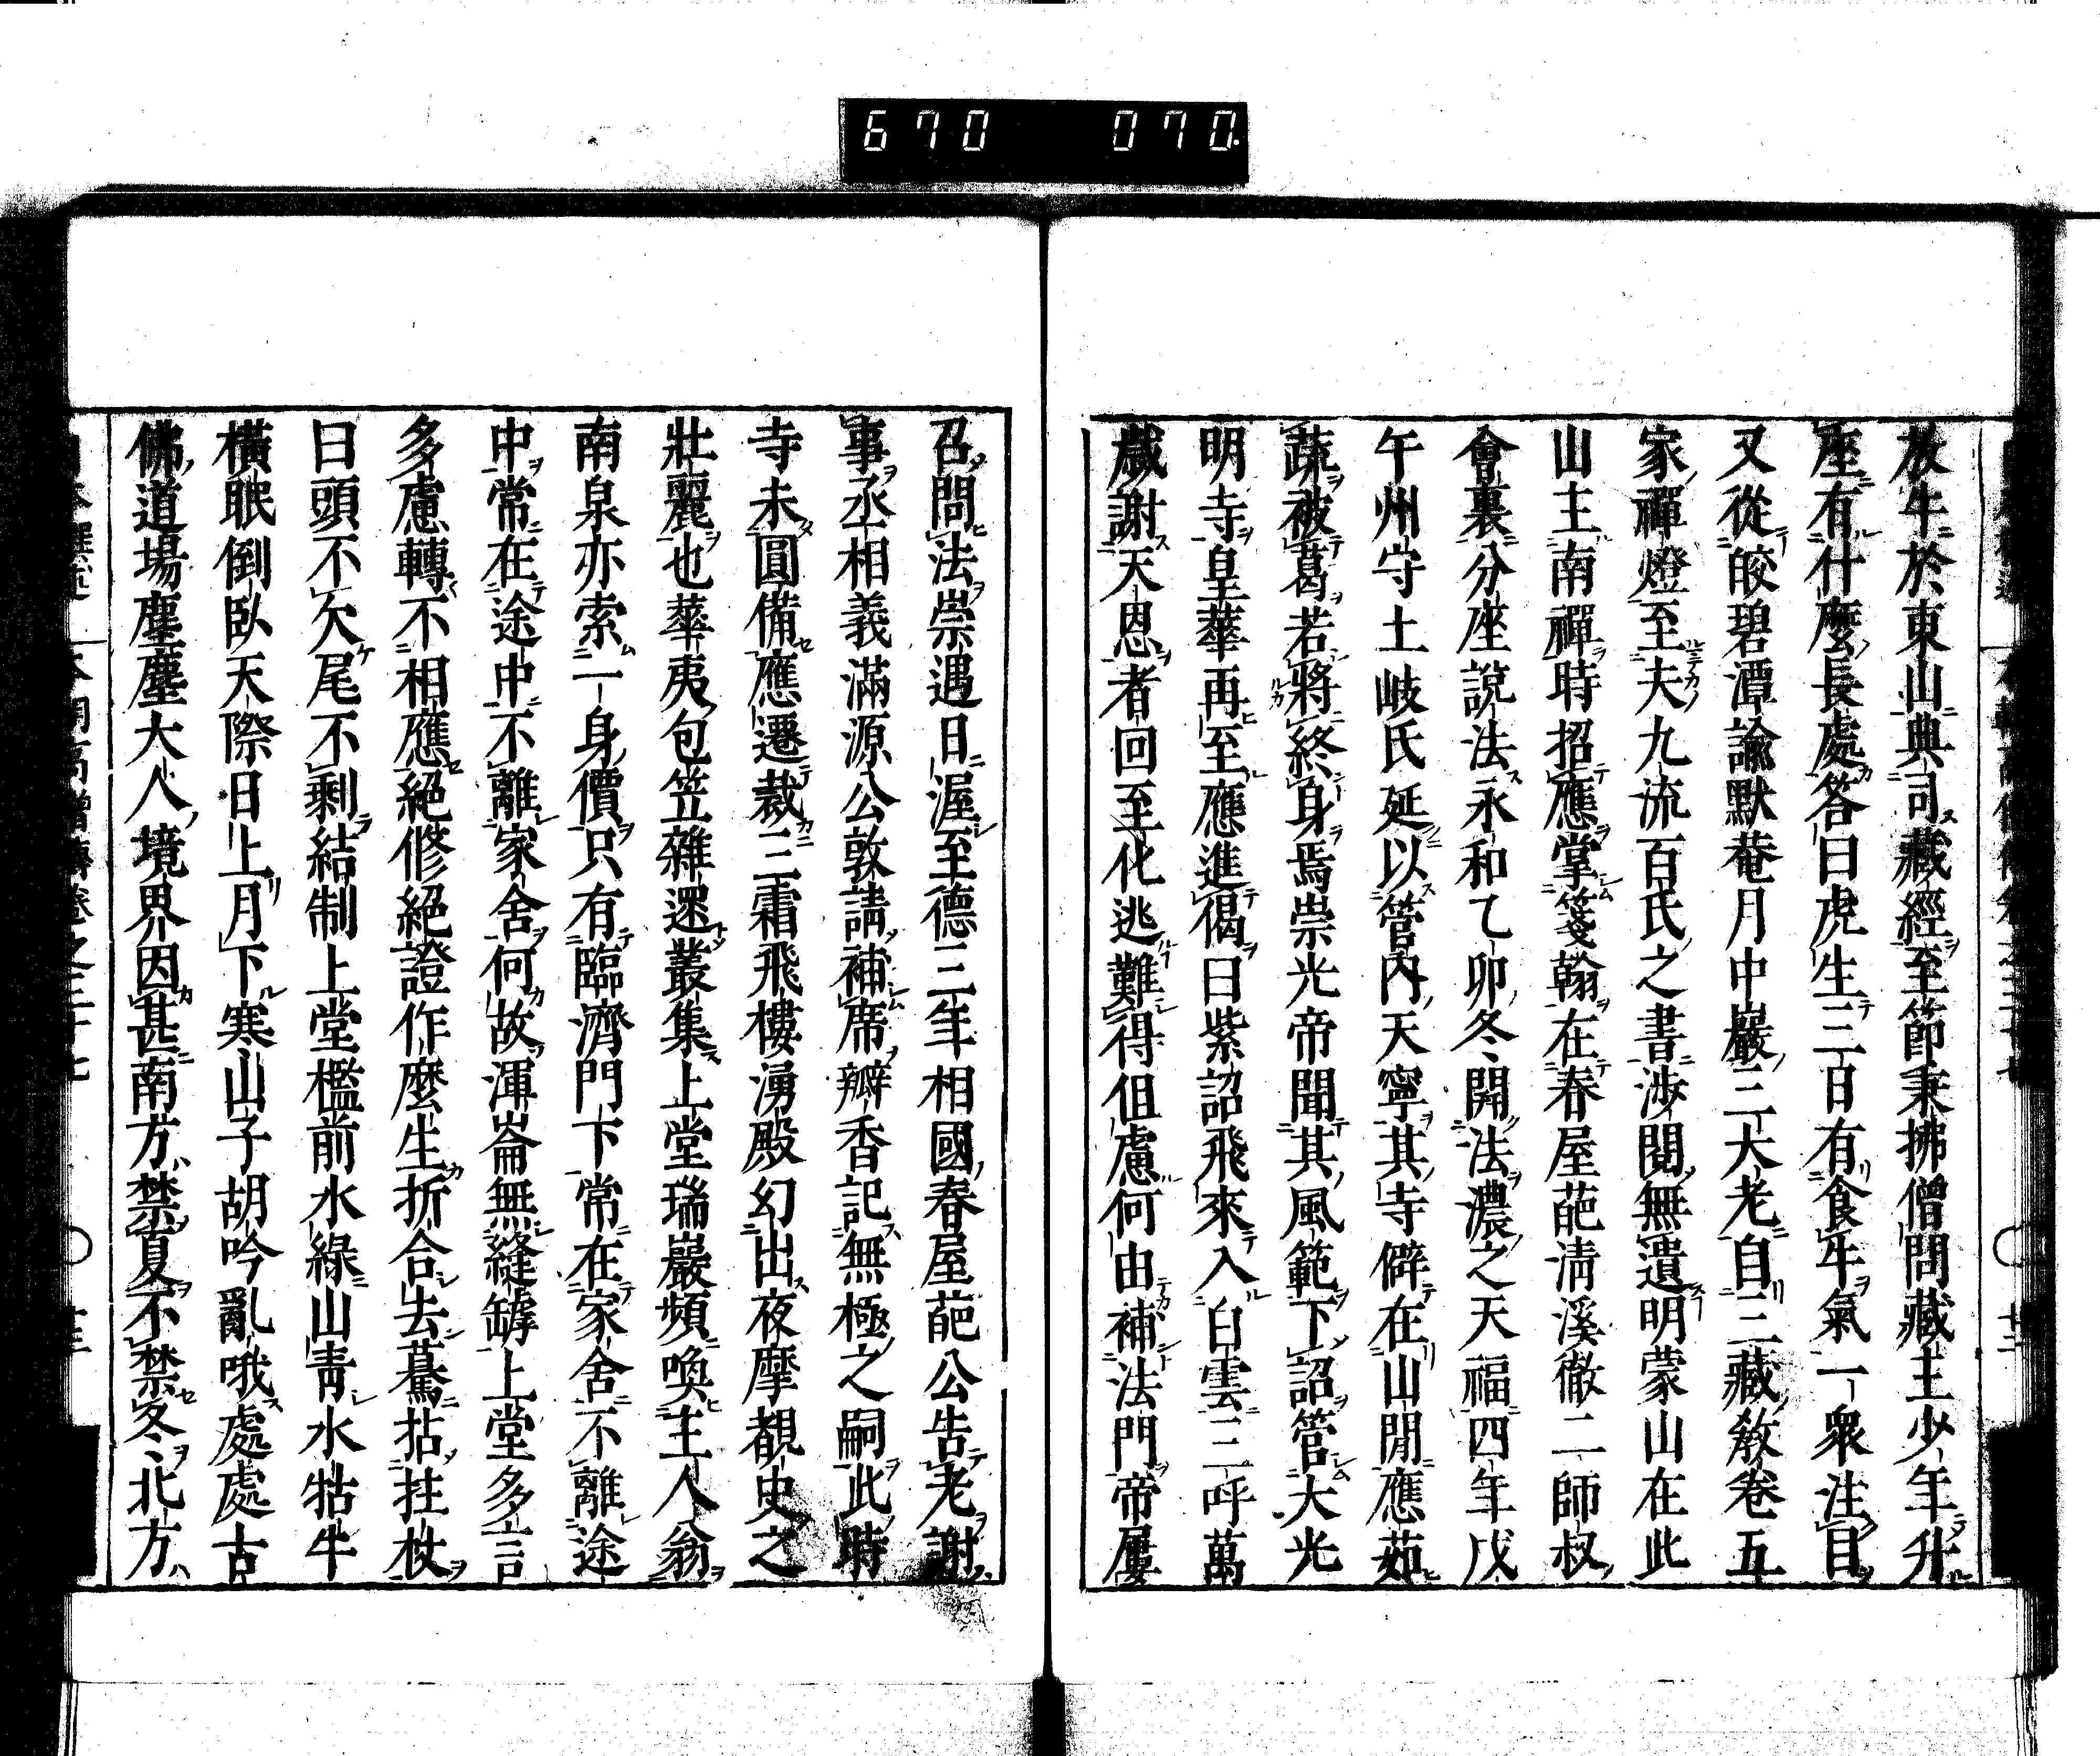 670 070
放牛於東山典司藏經至節秉拂僧問藏主少年升
座有什麼長處答曰虎生三日有食牛氣一衆注目
又從皎碧潭諭默菴月中巖三大老自三藏教卷五
家禪燈至夫九流百氏之書涉閱無遺明蒙山在此
山主南禪時招應掌箋翰在春屋葩清溪徹二師叔
會裏分座說法永和乙卯冬開法濃之天福四年戊
午州守土岐氏延以管內天寧其寺僻在山閒應茹
蔬被葛若將終身焉崇光帝聞其風範下詔管大光
明寺皇華再至應進偈曰紫詔飛來入白雲三呼萬
歲謝天恩者回至化逃難得但慮何由補法門帝屢
召問法崇遇日渥至德三年相國春屋葩公告老謝
事丞相義滿源公敦請補席瓣香記無極之嗣此時
寺未圓備應遷裁三霜飛樓湧殿幻出夜摩覩史之
壯麗也華夷包笠雜遝叢集上堂瑞巖頻喚主人翁
南泉亦索一身價只有臨濟門下常在家舍不離途
中常在途中不離家舍何故渾崙無縫罅上堂多言
多慮轉不相應絕修絕證作麼生折合去驀拈拄杖
曰頭不欠尾不剩結制上堂檻前水綠山青水牯牛
橫眠倒臥天際日上月下寒山子胡吟亂哦處處古
佛道場塵塵大人境界因甚南方禁夏不禁冬北方